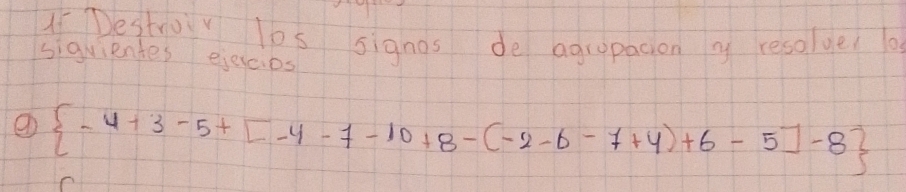 1- Destroir los signos de agrupacion y resolver los
siguientes ejercicios
a) { -4+3-5+ [-4-7-10+8-(-2-6-7+4)+6-5]-8}